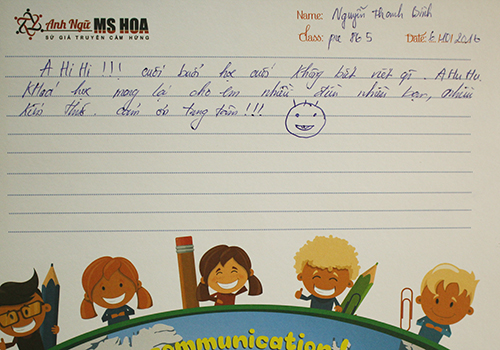 Anh Ngữ MS HOA
SỨ GIẢ TRUYỀN CẢM HỨNG
Name: Nguyễn Thanh Bình
Class: pre 865
Date: 2016
A Hi Hi !!! cuối buổi học cuối không biết viết gì. A Hu Hu.
Khoá học mang lại cho em nhiều điều nhiều bạn, nhiều
kiến thức. cảm ơn trung tâm!!!
communication f